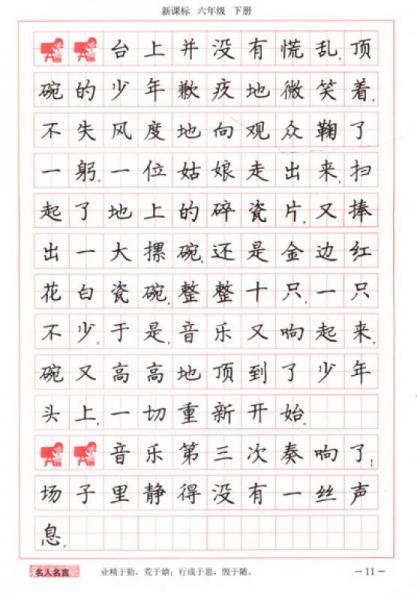 新课标 六年级 下册
台上并没有慌乱,顶
碗的少年歉疚地微笑着,
不失风度地向观众鞠了
一躬.一位姑娘走出来,扫
起了地上的碎瓷片,又捧
出一大摞碗,还是金边红
花白瓷碗,整整十只,一只
不少.于是,音乐又响起来,
碗又高高地顶到了少年
头上,一切重新开始.
音乐第三次奏响了!
场子里静得没有一丝声
息.
名人名言 业精于勤,荒于嬉;行成于思,毁于随。 —11—